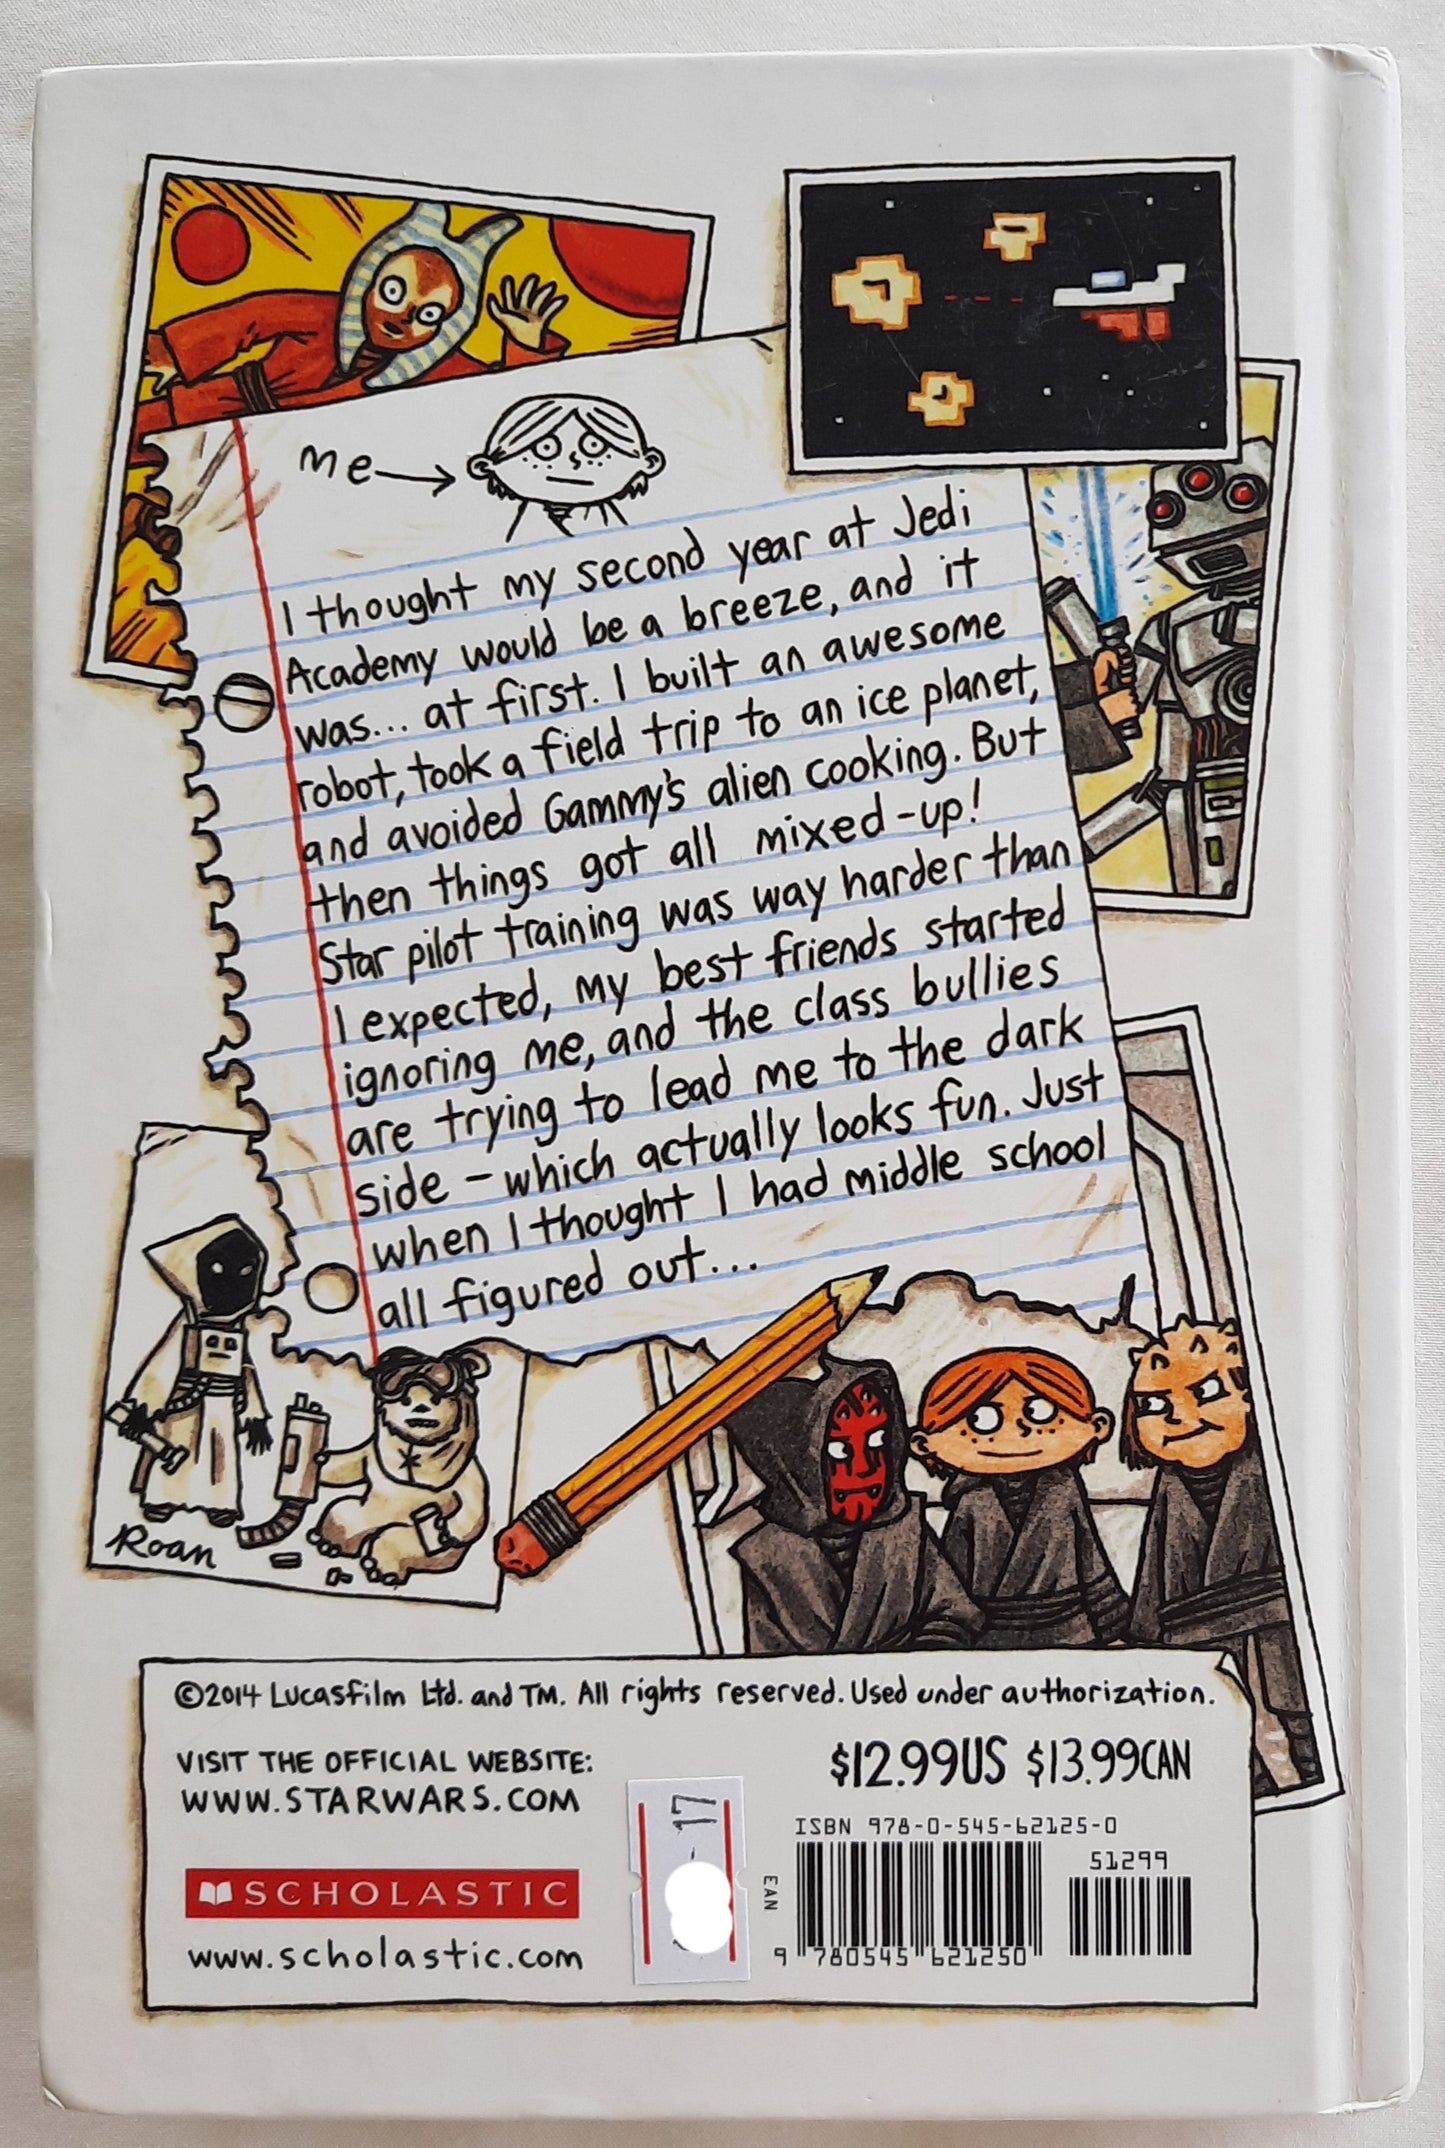 me
I thought my second year at Jedi
Academy would be a breeze, and it
was... at first. I built an awesome
robot, took a field trip to an ice planet,
and avoided Gammy's alien cooking. But
then things got all mixed-up!
Star pilot training was way harder than
I expected, my best friends started
ignoring me, and the class bullies
are trying to lead me to the dark
side - which actually looks fun. Just
when I thought I had middle school
all figured out...
Roan
©2014 Lucasfilm Ltd. and TM. All rights reserved. Used under authorization.
VISIT THE OFFICIAL WEBSITE:
WWW.STARWARS.COM
$12.99US $13.99CAN
SCHOLASTIC
www.scholastic.com
17
ISBN 978-0-545-62125-0
51299
EAN
9 780545 621250